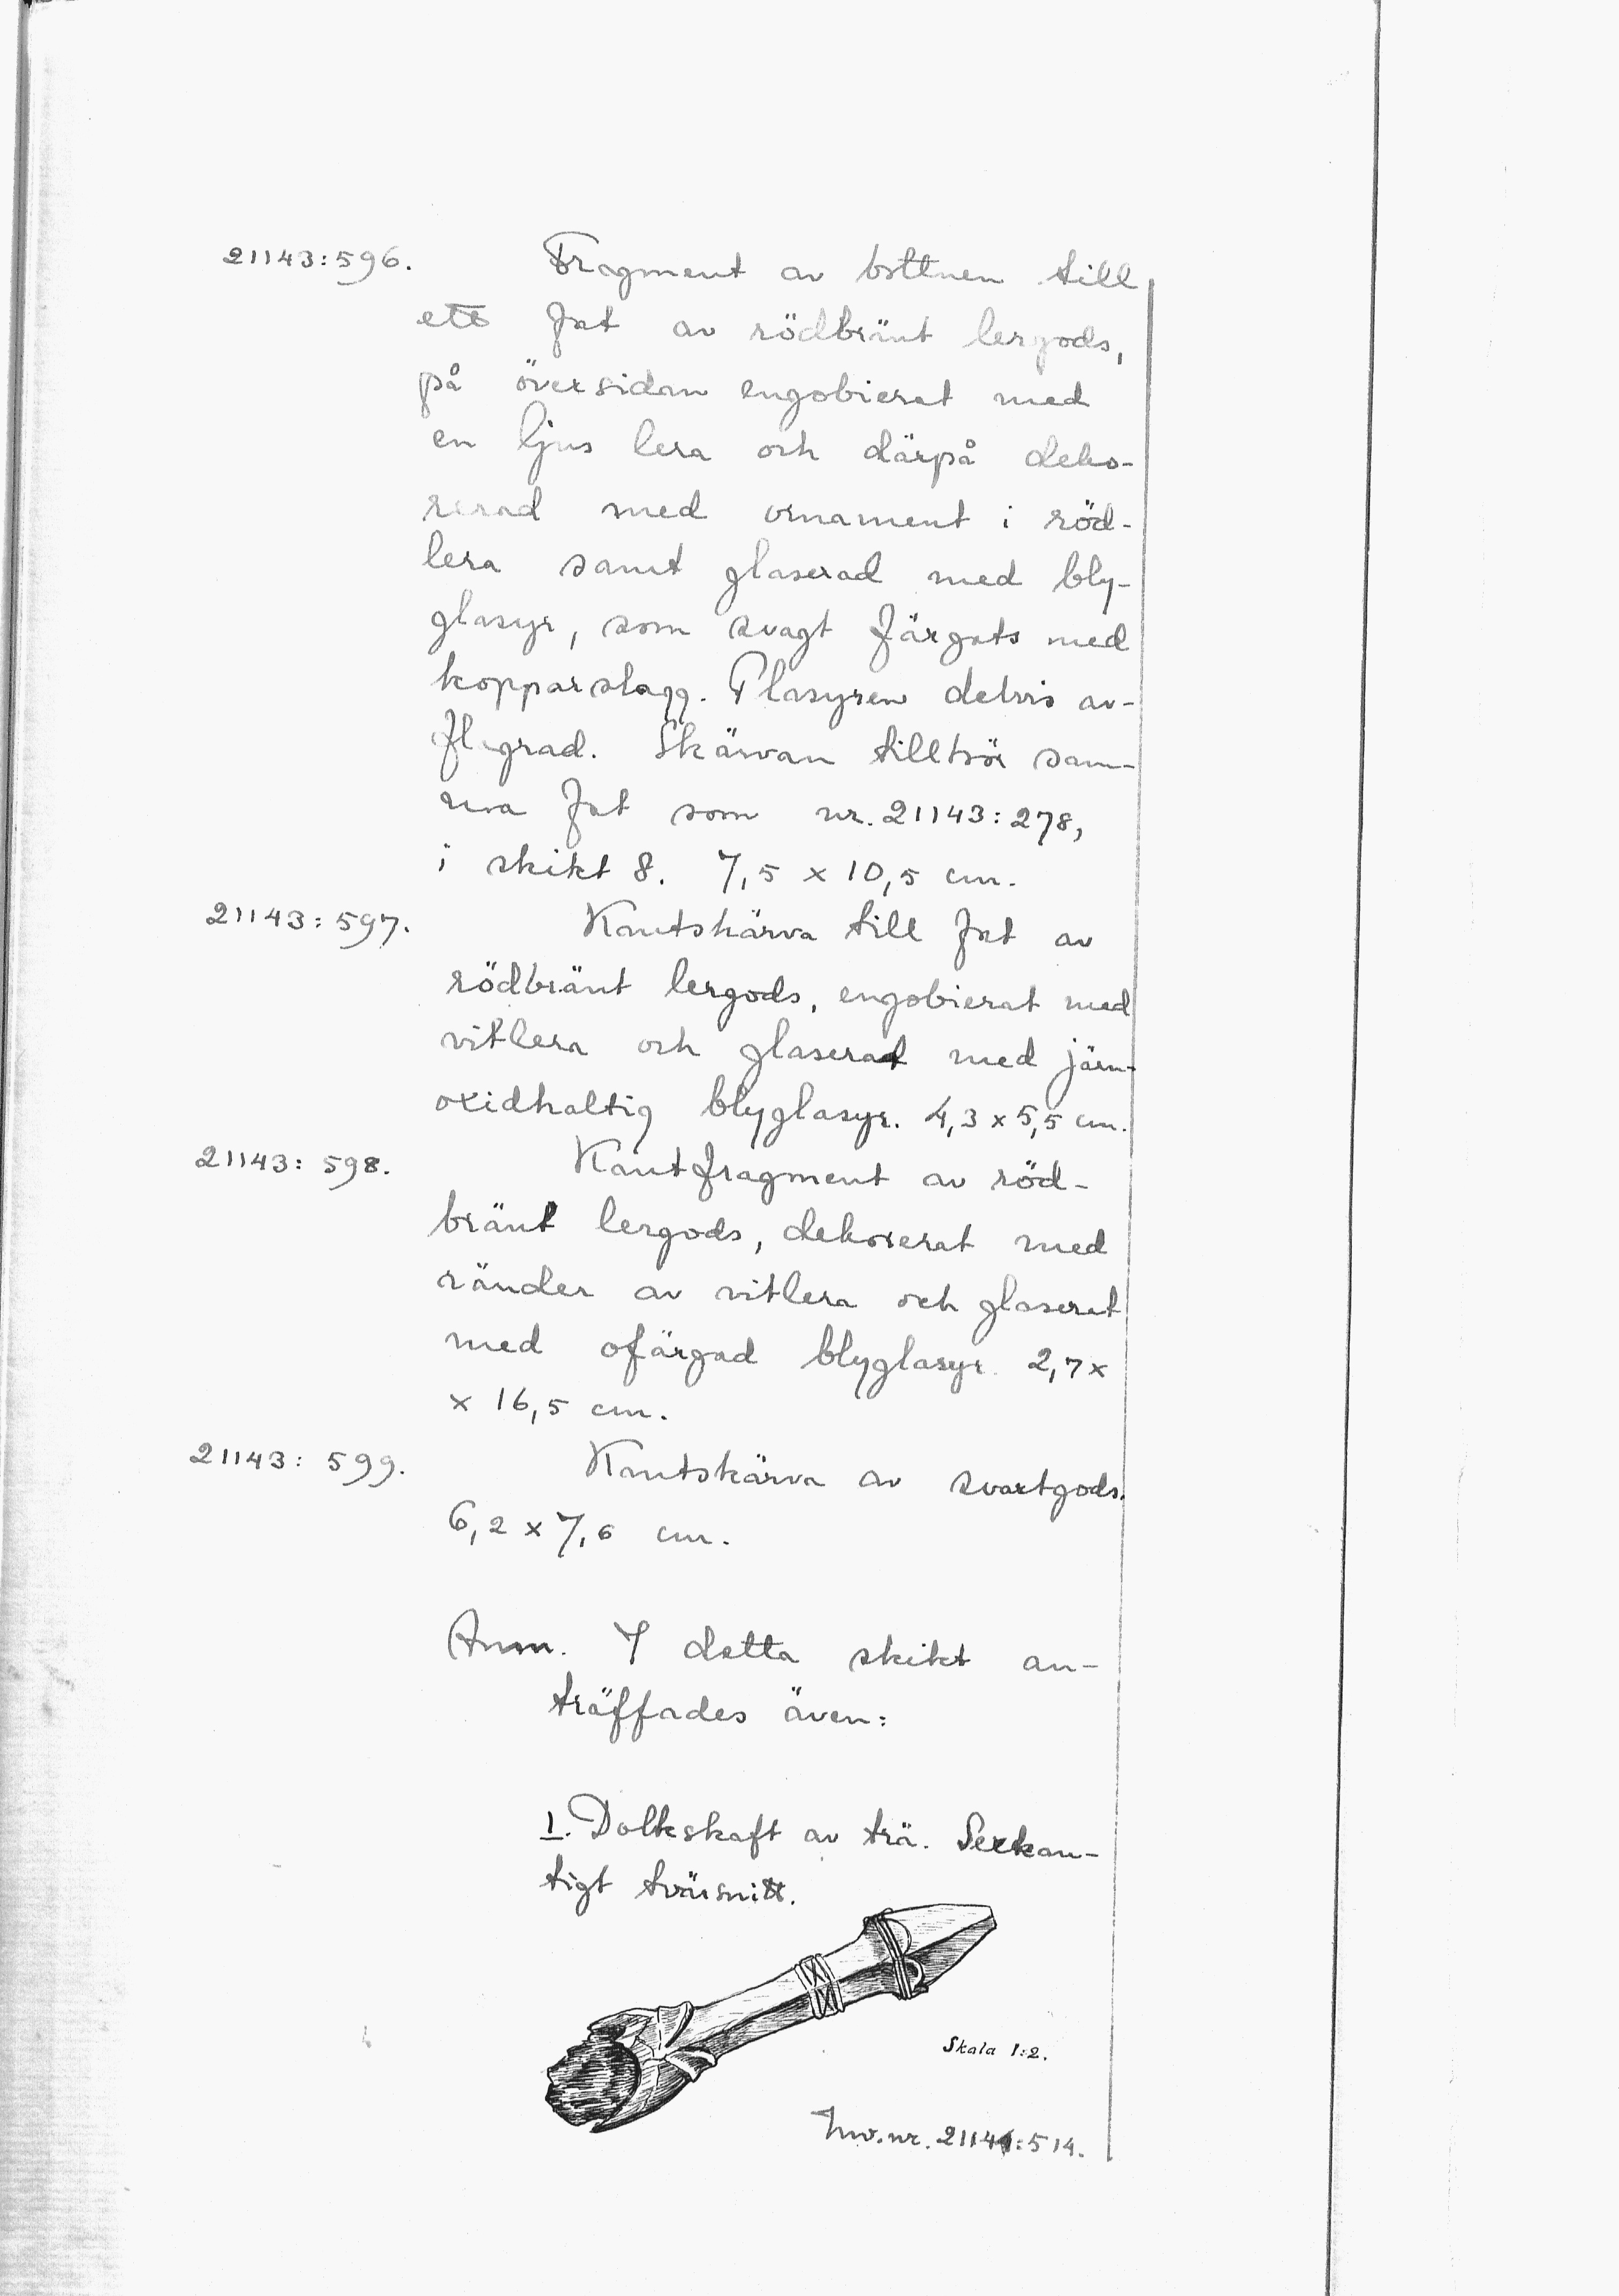 21143:596. Fragment av bottnen till
ett fat av rödbränt lergods,
på översidan engobierat med
en ljus lera och därpå deko-
rerad med ornament i röd-
lera samt glaserad med bly-
glasyr, som svagt färgats med
kopparslagg. Glasyren delvis av-
flagrad. Skärvan tillhör sam-
ma fat som nr. 21143:278,
i skikt 8. 7,5 x 10,5 cm.
21143:597. Kantskärva till fat av
rödbränt lergods, engobierat med
vitlera och glaserat med järn-
oxidhaltig blyglasyr. 4,3 x 5,5 cm.
21143:598. Kantfragment av röd-
bränt lergods, dekorerat med
ränder av vitlera och glaserat
med ofärgad blyglasyr. 2,7 x
x 16,5 cm.
21143:599. Kantskärva av svartgods.
6,2 x 7,6 cm.
Anm. I detta skikt an-
träffades även:
1. Dolkskaft av trä. Sexkan-
tigt tvärsnitt.
Skala 1:2.
Inv.nr. 21141:514.